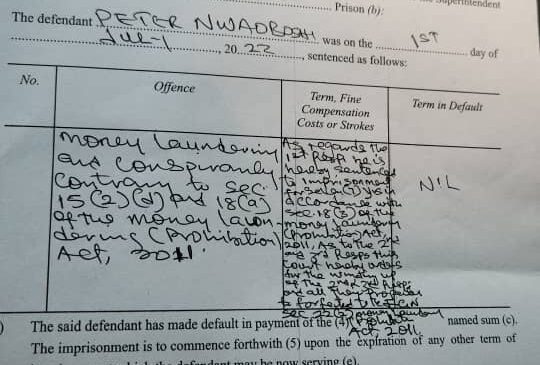 Superintendent
Prison (b):
The defendant PETER NWAOBOSHI was on the 1ST day of
July, 20 22, sentenced as follows:
No.
Offence
Term, Fine
Compensation
Costs or Strokes
Term in Default
Money Laundering
and Conspiracy
Contrary to Sec.
15 (2) (d) and 18 (a)
of the Money Laun-
dering (Prohibition)
Act, 2011.
As regards the
1st Resp he is
hereby sentenced
to imprisonment
for seven (7) yrs in
accordance with
sec. 15 (3) of the
Money Laundering
(Prohibition) Act,
2011. As to the 2nd
and 3rd Resps this
Court hereby orders
for the winding up
of the 2nd & 3rd Resps
and all their Properties
to forfeited to the FGN
Sec 22 (2) Money Laundering
Act, 2011.
NIL
The said defendant has made default in payment of the (4) named sum (c).
The imprisonment is to commence forthwith (5) upon the expiration of any other term of
which the defendant may be now serving (e).